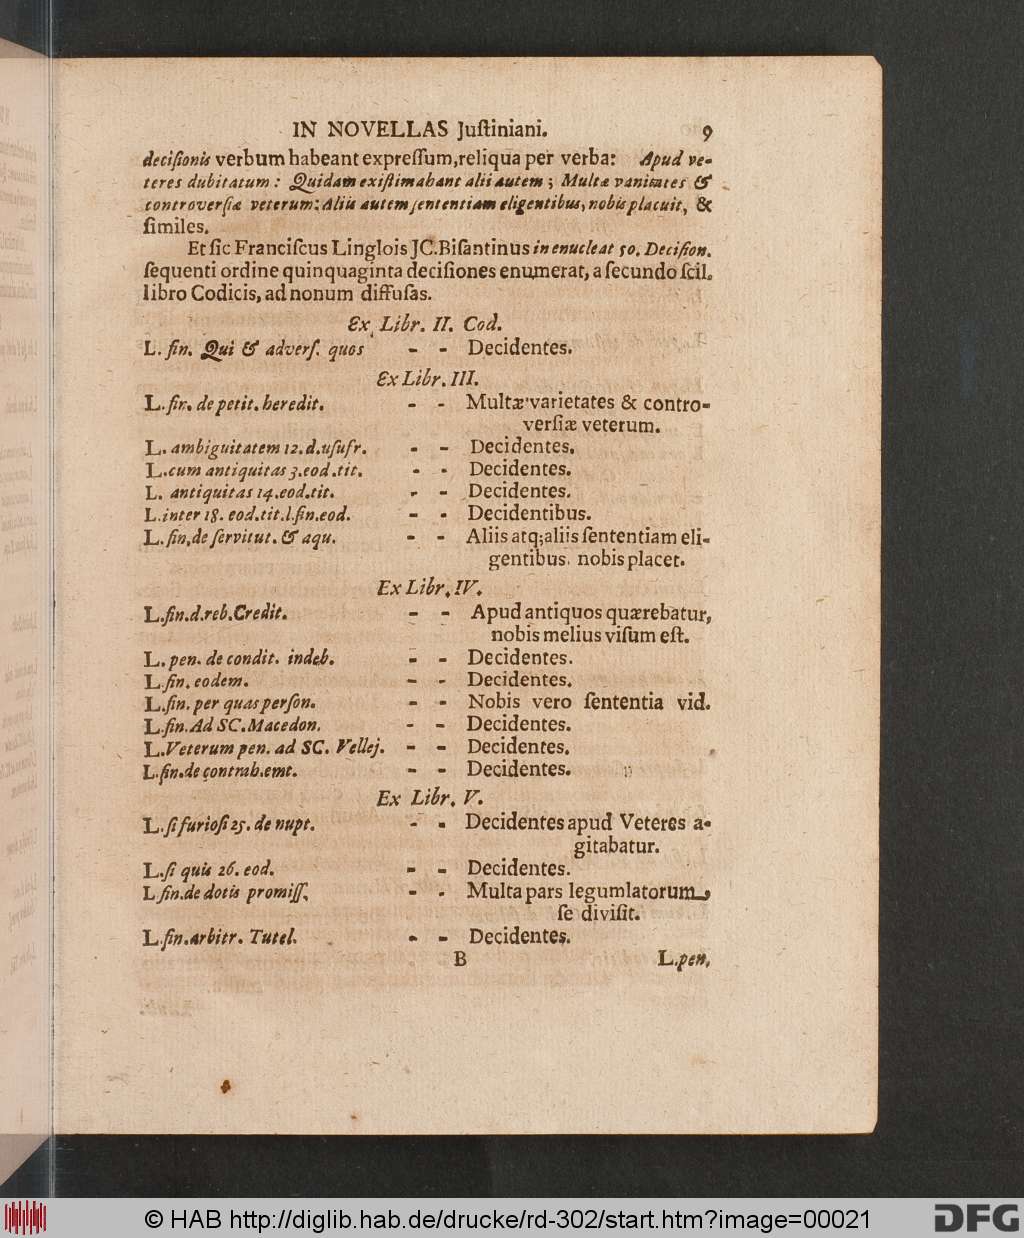 IN NOVELLAS Juſtiniani. 9
deciſionis verbum habeant expreſſum, reliqua per verba: Apud ve-
teres dubitatum: Quidam exiſtimabant alii autem; Multæ vanitates &
controverſiæ veterum: Aliis autem ſententiam eligentibus, nobis placuit, &
ſimiles.
Et ſic Franciſcus Linglois JC. Biſantinus in enucleat 50. Deciſion.
ſequenti ordine quinquaginta deciſiones enumerat, a ſecundo ſcil.
libro Codicis, ad nonum diffuſas.
Ex Libr. II. Cod.
L. fin. Qui & adverſ. quos - - Decidentes.
Ex Libr. III.
L. fin. de petit. heredit. - - Multæ varietates & contro-
verſiæ veterum.
L. ambiguitatem 12. d. uſufr. - - Decidentes.
L. cum antiquitas 3. eod. tit. - - Decidentes.
L. antiquitas 14. eod. tit. - - Decidentes.
L. inter 18. eod. tit. l. fin. eod. - - Decidentibus.
L. fin. de ſervitut. & aqu. - - Aliis atq; aliis ſententiam eli-
gentibus. nobis placet.
Ex Libr. IV.
L. fin. d. reb. Credit. - - Apud antiquos quærebatur,
nobis melius viſum eſt.
L. pen. de condit. indeb. - - Decidentes.
L. fin. eodem. - - Decidentes.
L. fin. per quas perſon. - - Nobis vero ſententia vid.
L. fin. Ad SC. Macedon. - - Decidentes.
L. Veterum pen. ad SC. Vellej. - - Decidentes.
L. fin. de contrah. emt. - - Decidentes.
Ex Libr. V.
L. ſi furioſi 25. de nupt. - - Decidentes apud Veteres a-
gitabatur.
L. ſi quis 26. eod. - - Decidentes.
L fin. de dotis promiſſ. - - Multa pars legumlatorum,
ſe diviſit.
L. fin. arbitr. Tutel. - - Decidentes.
B L. pen.
© HAB http://diglib.hab.de/drucke/rd-302/start.htm?image=00021
DFG